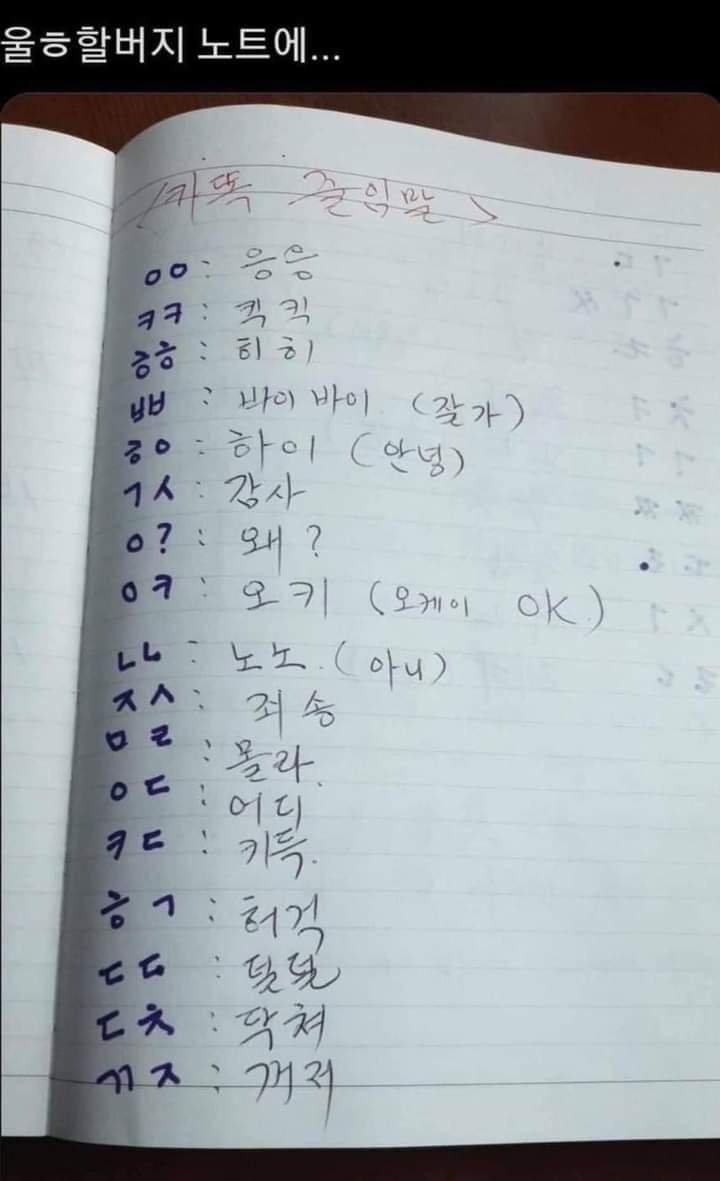 울ㅎ할버지 노트에...
<카똑 줄임말>
ㅇㅇ: 응응
ㅋㅋ: 킥킥
ㅎㅎ: 히히
ㅃㅃ: 바이바이 (잘가)
ㅎㅇ: 하이 (안녕)
ㄱㅅ: 감사
ㅇ?: 왜?
ㅇㅋ: 오키 (오케이 OK.)
ㄴㄴ: 노노.(아니)
ㅈㅅ: 죄송
ㅁㄹ: 몰라.
ㅇㄷ: 어디
ㅋㄷ: 키득.
ㅎㄱ: 허걱
ㄷㄷ: 덜덜
ㄷㅊ: 닥쳐
ㄲㅈ: 꺼져